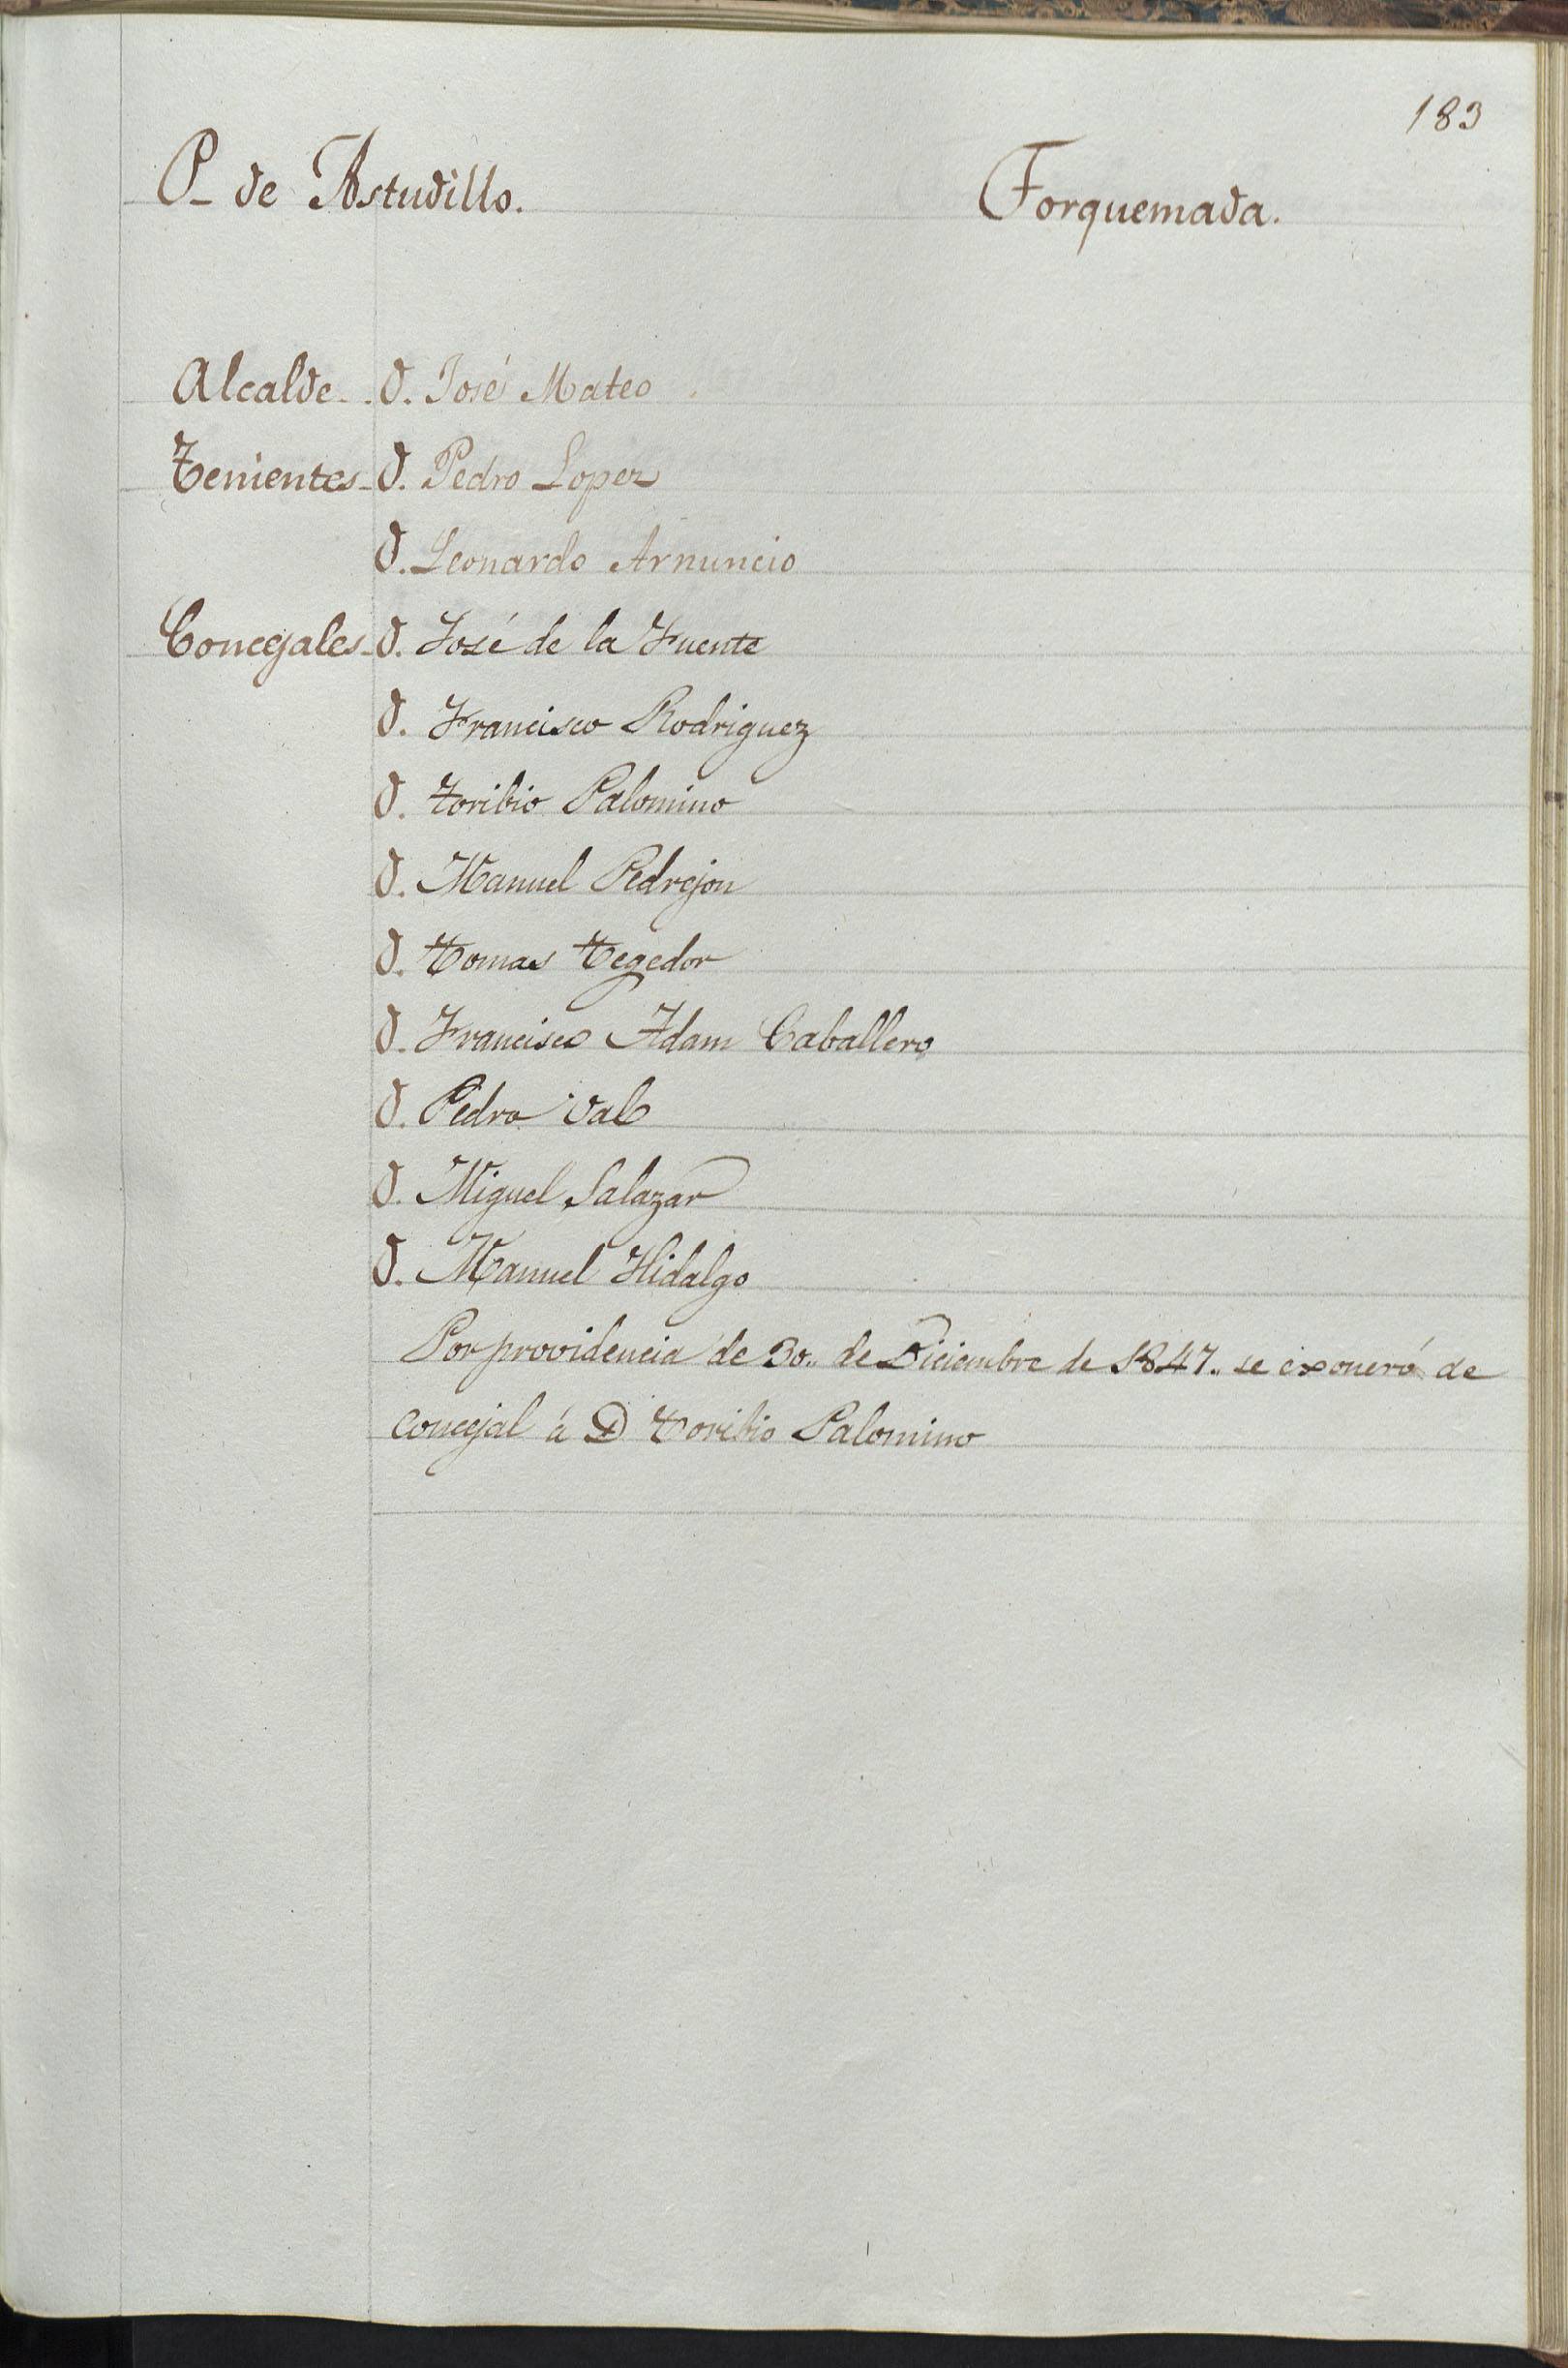 183
P. de Astudillo. Torquemada.
Alcalde - D. José Mateo
Tenientes - D. Pedro Lopez
D. Leonardo Arnuncio
Concejales - D. José de la Fuente
D. Francisco Rodriguez
D. Toribio Palomino
D. Manuel Pedrejon
D. Tomas Tegedor
D. Francisco Adam Caballero
D. Pedro Val
D. Miguel Salazar
D. Manuel Hidalgo
Por providencia de 30.. de Diciembre de 1847.. se exoneró de
concejal á D Toribio Palomino